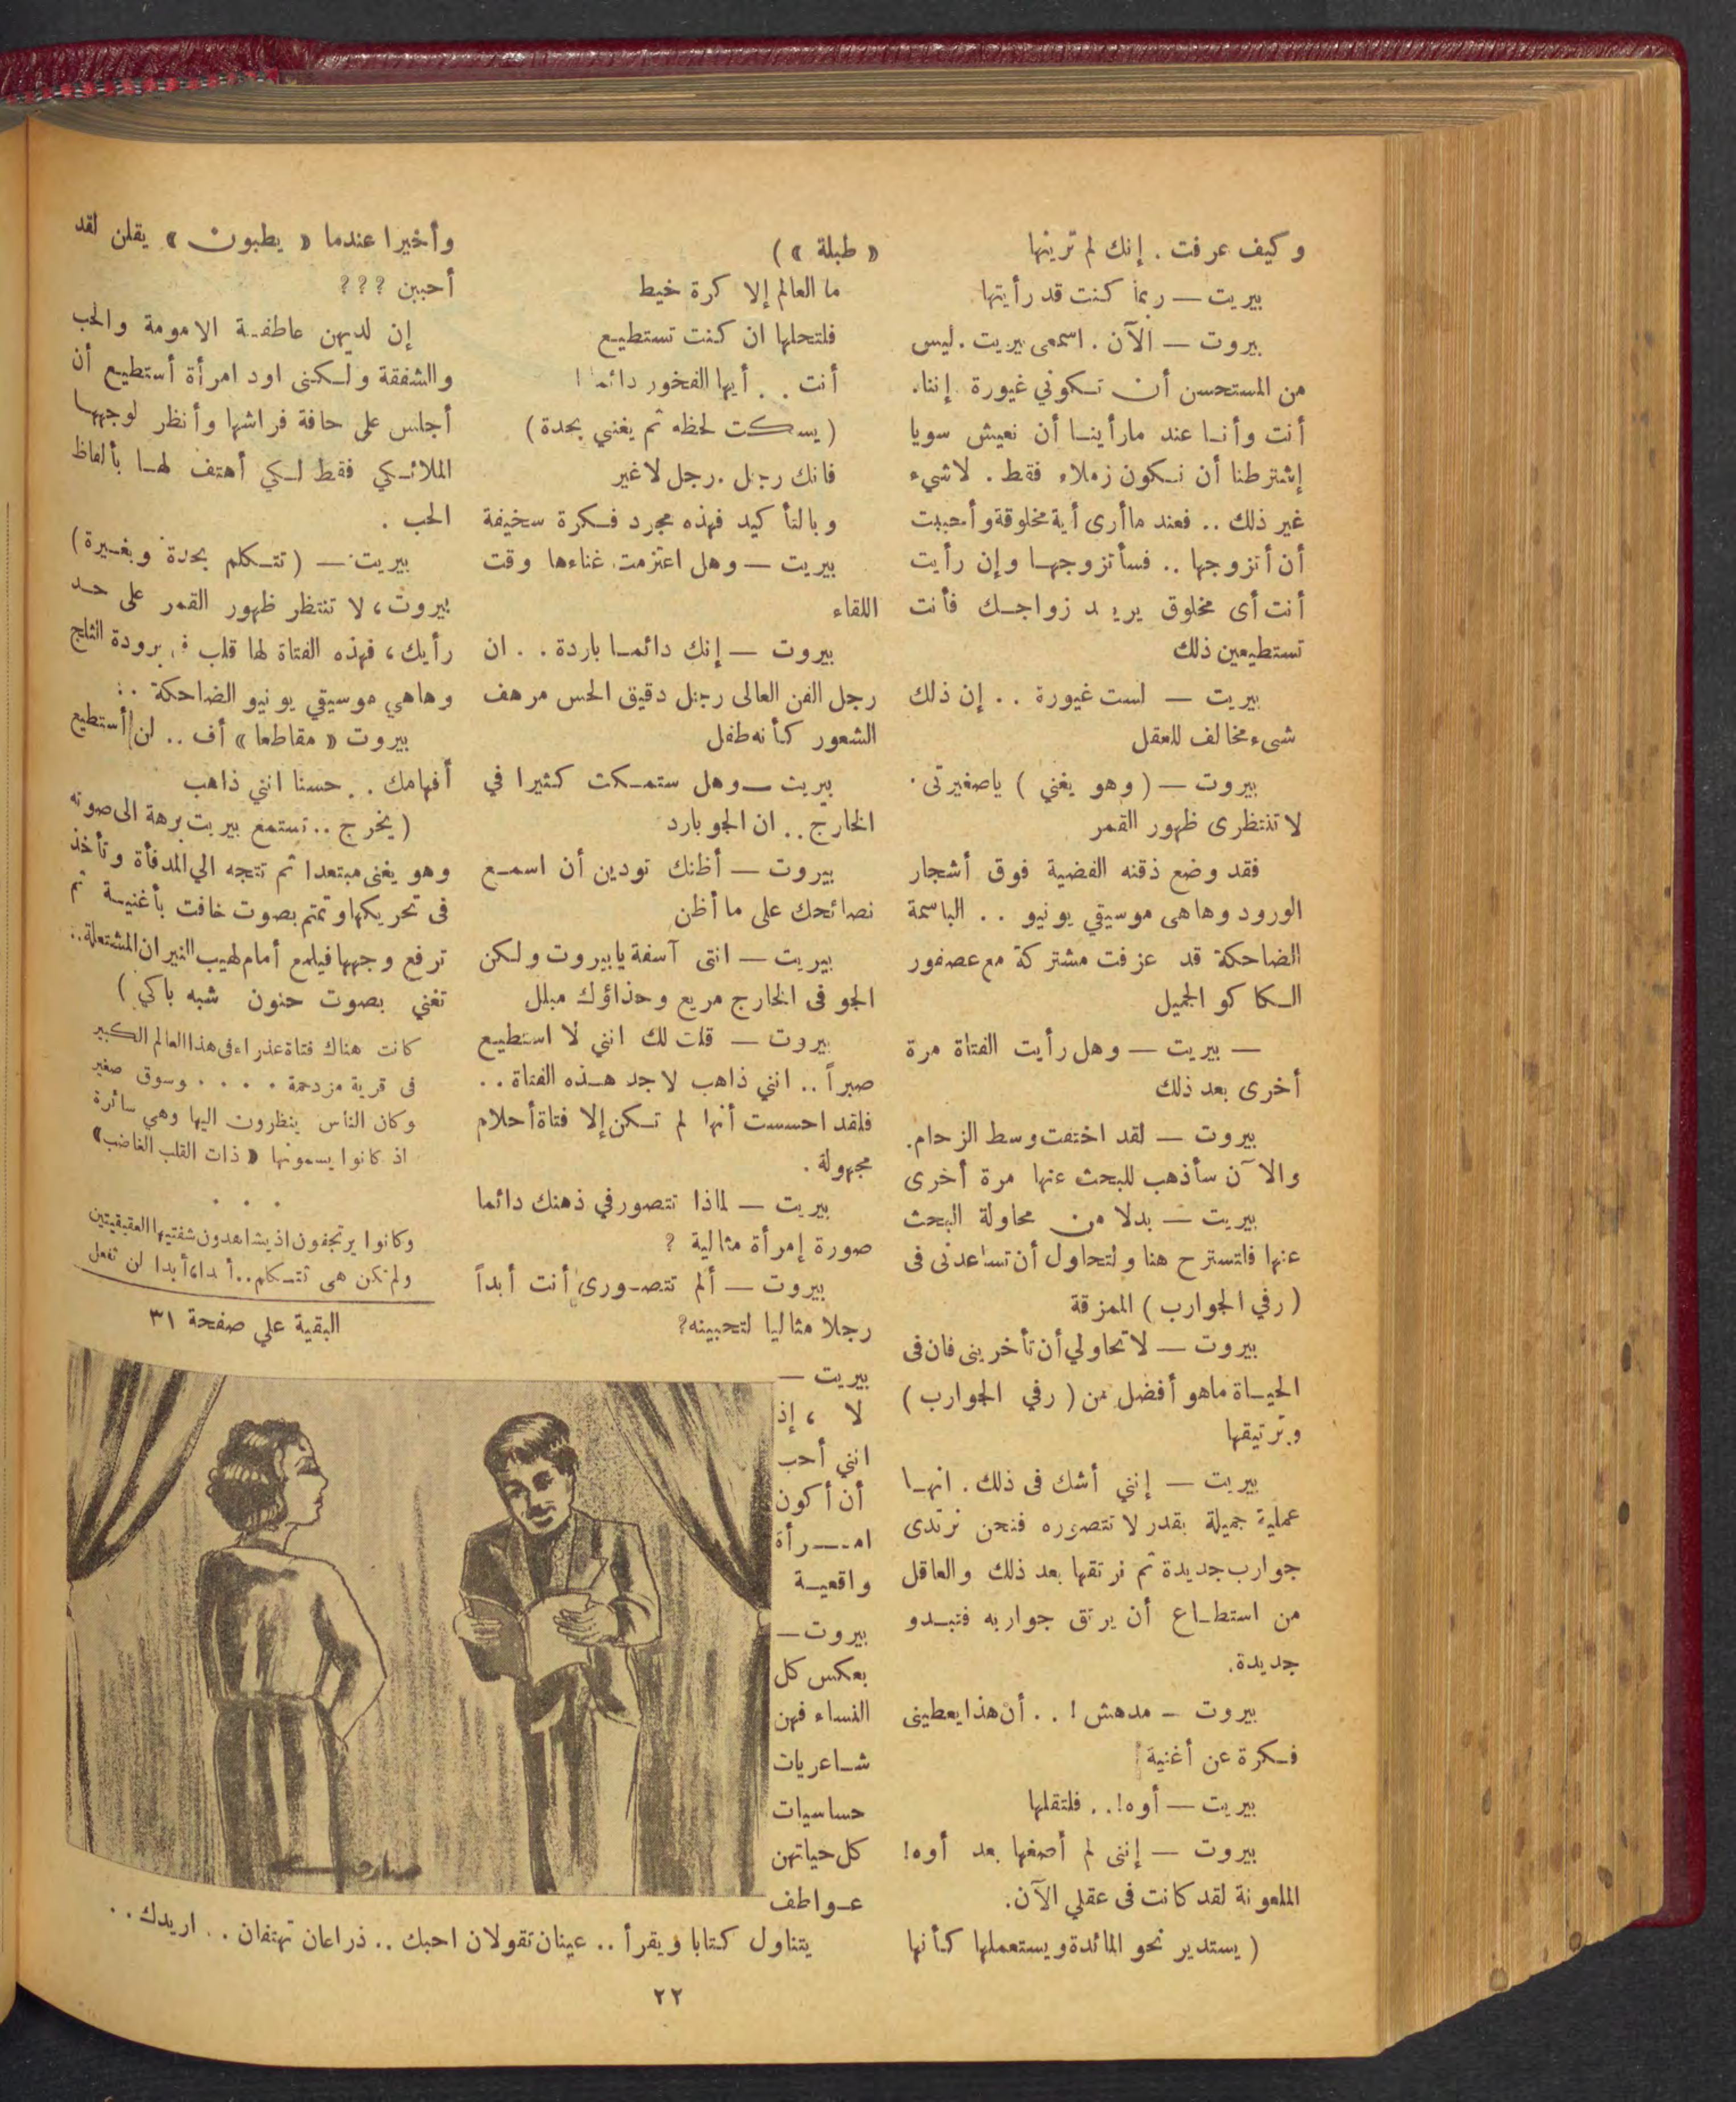 وكيف عرفت . إنك لم ترينها
بيريت — ربما كنت قد رأيتها
بيروت — الآن . اسمعى بيريت . ليس
من المستحسن أن تكوني غيورة . إننا .
أنت وأنا عند مارأينا أن نعيش سويا
إشترطنا أن نكون زملاء فقط . لاشيء
غير ذلك .. فعند ماأرى أية مخلوقة وأحببت
أن أتزوجها .. فسأتزوجها وإن رأيت
أنت أى مخلوق يريد زواجك فأنت
تستطيعين ذلك
بيريت — لست غيورة .. إن ذلك
شىء مخالف للعقل
بيروت — ( وهو يغني ) ياصغيرتى .
لا تنتظرى ظهور القمر
فقد وضع ذقنه الفضية فوق أشجار
الورود وهاهى موسيقي يونيو .. الباسمة
الضاحكة قد عزفت مشتركة مع عصفور
الكاكو الجميل
— بيريت — وهل رأيت الفتاة مرة
أخرى بعد ذلك
بيروت — لقد اختفت وسط الزحام .
والآن سأذهب للبحث عنها مرة أخرى
بيريت — بدلا من محاولة البحث
عنها فلتسترح هنا ولتحاول أن تساعدنى فى
( رفي الجوارب ) الممزقة
بيروت — لاتحاولي أن تأخرينى فان فى
الحياة ماهو أفضل من ( رفي الجوارب )
وترتيقها
بيريت — إنني أشك فى ذلك . انها
عملية جميلة بقدر لا تتصوره فنحن نرتدى
جوارب جديدة ثم نرتقها بعد ذلك والعاقل
من استطاع أن يرتق جواربه فتبدو
جديدة .
بيروت — مدهش ! .. أن هذا يعطينى
فكرة عن أغنية
بيريت — أوه ! .. فلتقلها
بيروت — إننى لم أصغها بعد أوه !
الملعونة لقد كانت فى عقلي الآن .
( يستدير نحو المائدة ويستعملها كأنها
« طبلة » )
ما العالم إلا كرة خيط
فلتحلها ان كنت تستطيع
أنت .. أيها الفخور دائما
( يسكت لحظه ثم يغني بحدة )
فانك رجل . رجل لاغير
وبالتأكيد فهذه مجرد فكرة سخيفة
بيريت — وهل اعتزمت غناءها وقت
اللقاء
بيروت — إنك دائما باردة .. ان
رجل الفن العالى رجل دقيق الحس مرهف
الشعور كأنه طفل
بيريت — وهل ستمكث كثيرا في
الخارج .. ان الجو بارد
بيروت — أظنك تودين أن اسمع
نصائحك على ما أظن
بيريت — انتى آسفة يابيروت ولكن
الجو فى الخارج مريع وحذاؤك مبلل
بيروت — قلت لك انني لا استطيع
صبراً .. انني ذاهب لاجد هذه الفتاة ..
فلقد احسست أنها لم تكن إلا فتاة أحلام
مجهولة .
بيريت — لماذا تتصور في ذهنك دائما
صورة إمرأة مثالية ?
بيروت — ألم تتصورى أنت أبداً
رجلا مثاليا لتحبينه?
بيريت —
لا ، إذ
انني أحب
أن أكون
امرأة
واقعية
بيروت —
بعكس كل
النساء فهن
شاعريات
حساسيات
كل حياتهن
عواطف
يتناول كتابا ويقرأ .. عينان تقولان احبك .. ذراعان تهتفان .. اريدك ..
وأخيرا عندما « يطبون » يقلن لقد
أحببن ? ? ?
إن لديهن عاطفة الامومة والحب
والشفقة ولكنى اود امرأة أستطيع أن
أجلس على حافة فراشها وأنظر لوجهها
الملائكي فقط لكي أهتف لها بألفاظ
الحب .
بيريت — ( تتكلم بحدة وبغيرة )
بيروت ، لا تنتظر ظهور القمر على حد
رأيك ، فهذه الفتاة لها قلب فى برودة الثلج
وهاهي موسيقي يونيو الضاحكة ..
بيروت « مقاطعا » أف .. لن أستطيع
أفهامك .. حسنا انني ذاهب
( يخرج .. تستمع بيريت برهة الى صوته
وهو يغنى مبتعدا ثم تتجه الي المدفأة وتأخذ
فى تحريكها وتمتم بصوت خافت بأغنية ثم
ترفع وجهها فيلمع أمام لهيب النيران المشتعلة ..
تغني بصوت حنون شبه باكي )
كانت هناك فتاة عذراء فى هذا العالم الكبير
فى قرية مزدحمة . . . . وسوق صغير
وكان الناس ينظرون اليها وهي سائرة
اذ كانوا يسمونها « ذات القلب الغاضب »
. . .
وكانوا يرتجفون اذ يشاهدون شفتيها العقيقيتين
ولم تكن هى تتكلم .. أبداً أبدا لن تفعل
البقية علي صفحة ٣١
٢٢